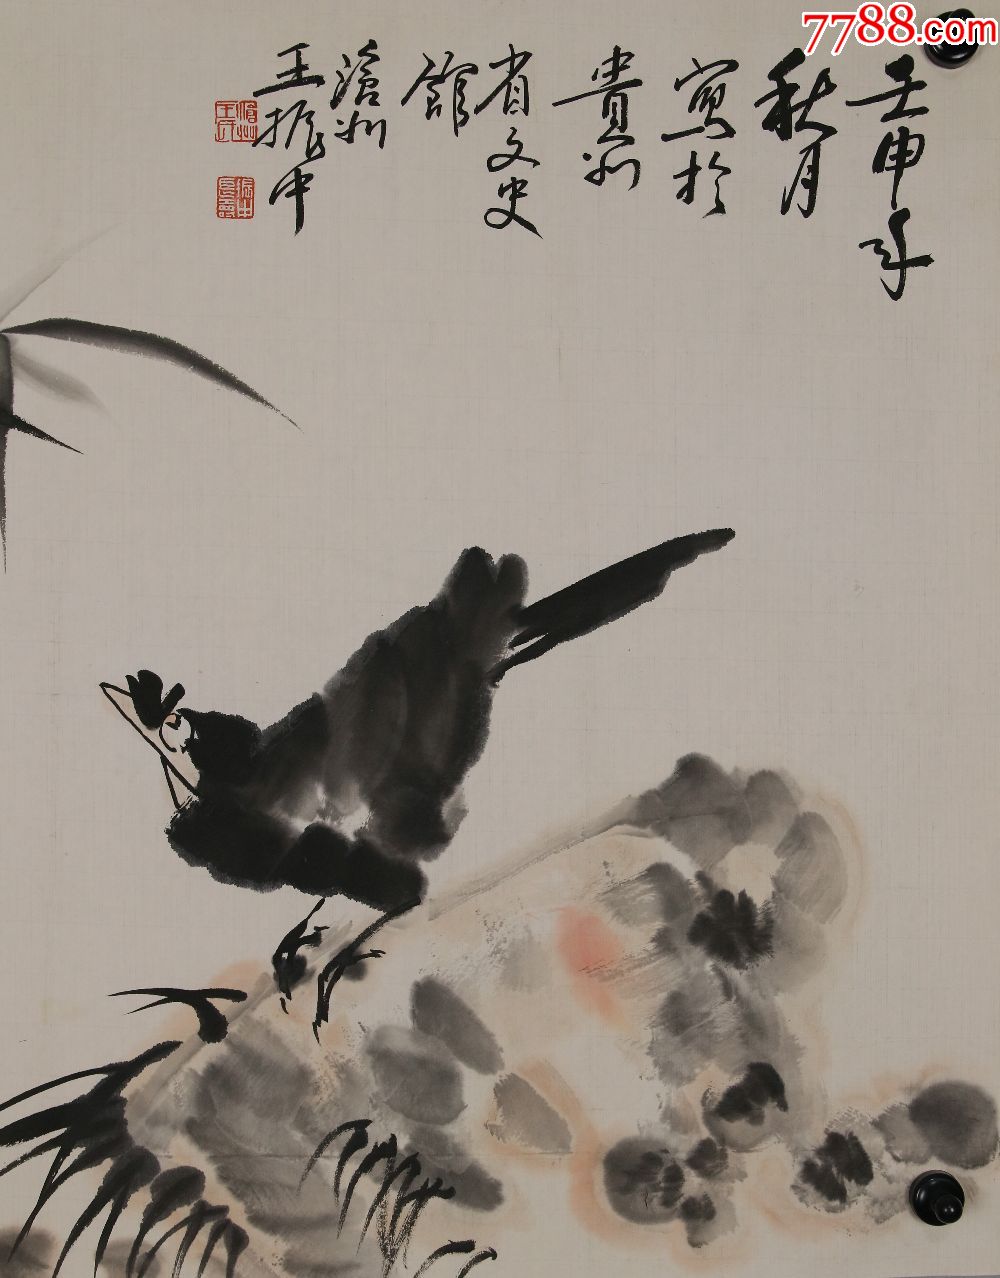 7788.com
壬申年
秋月
寫於
貴州
省文史
館
滄州
王振中